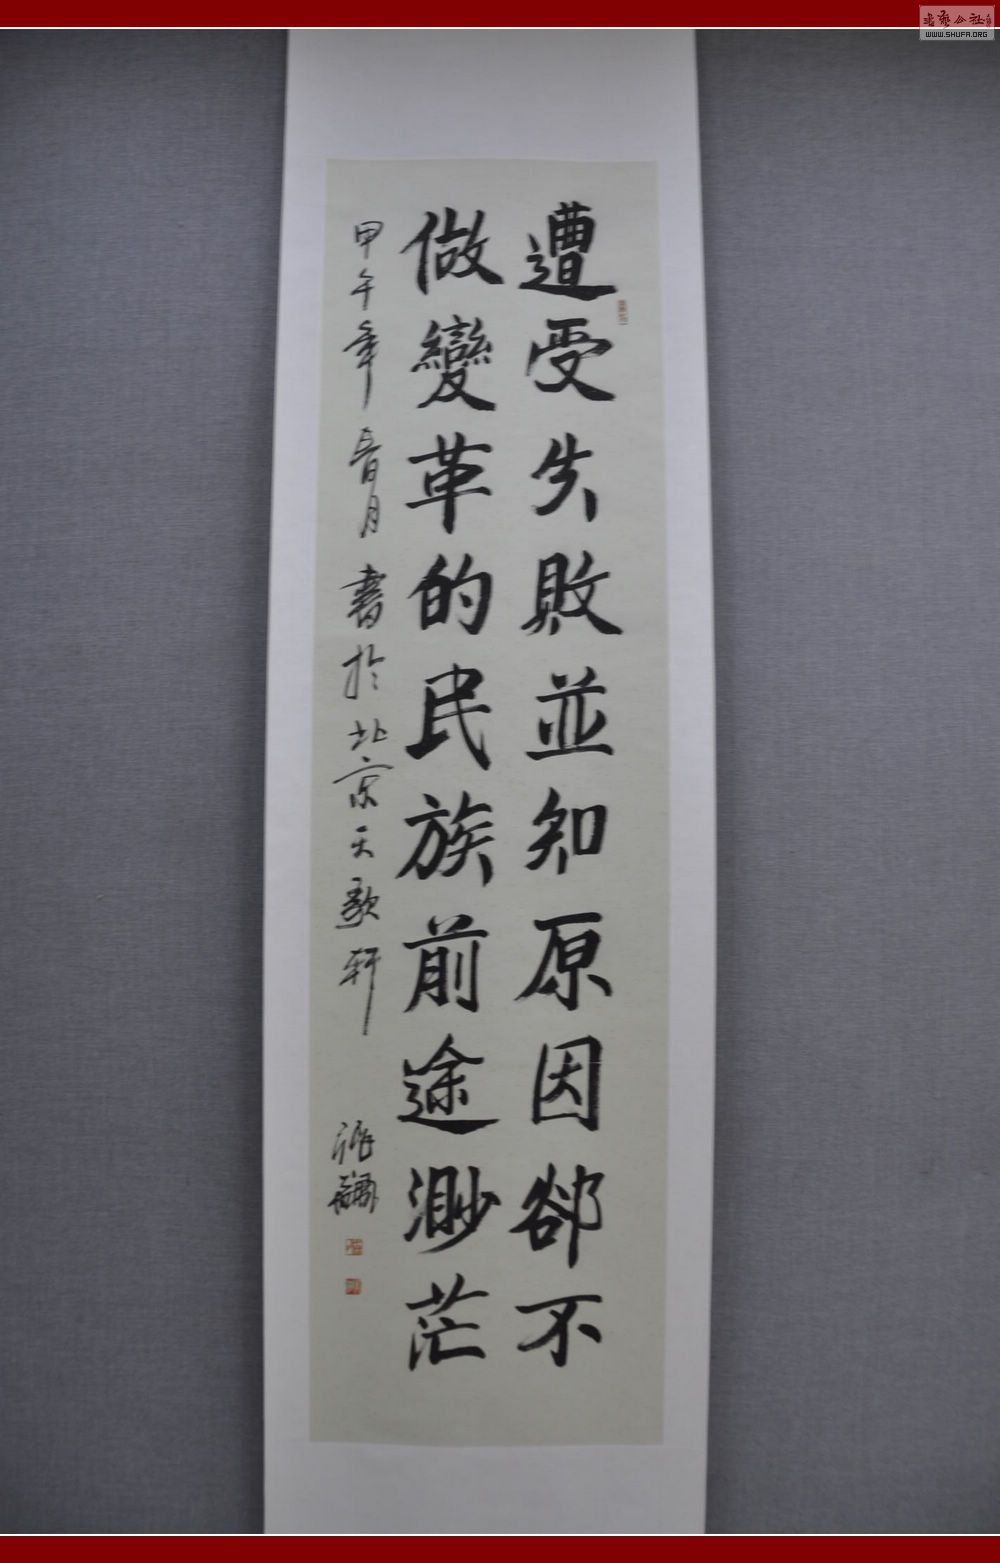 遭受失敗並知原因卻不
做變革的民族前途渺茫
甲午年 春月 書於北京天歌軒
WWW.SHUFA.ORG